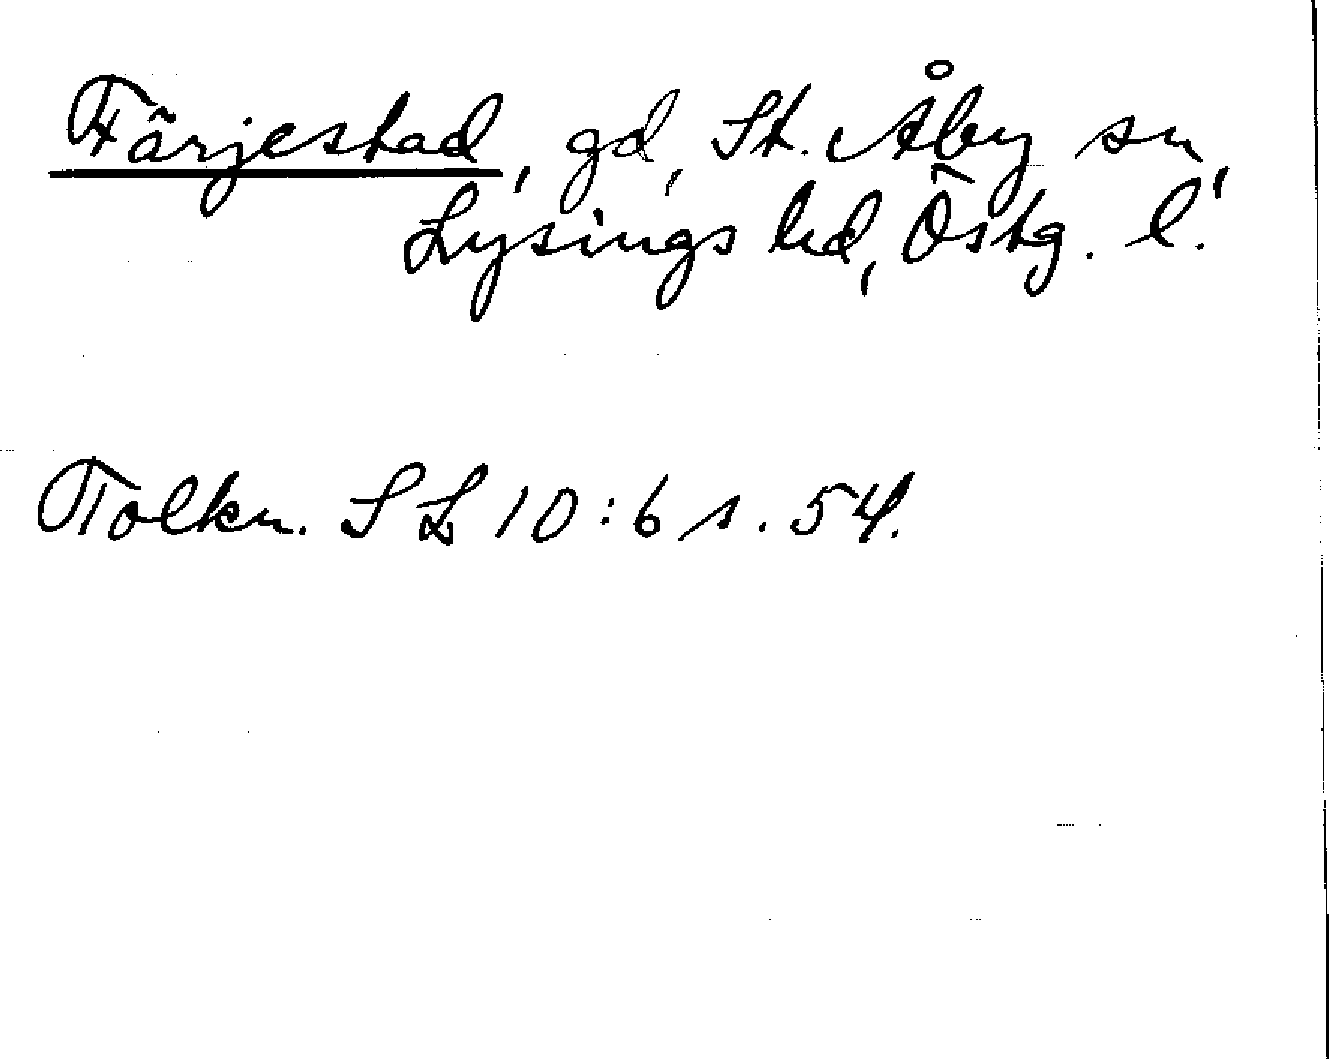 Färjestad, gd, St. Åby sn,
Lysings hd, Östg. l.
Tolkn. SL 10:6 s. 54.